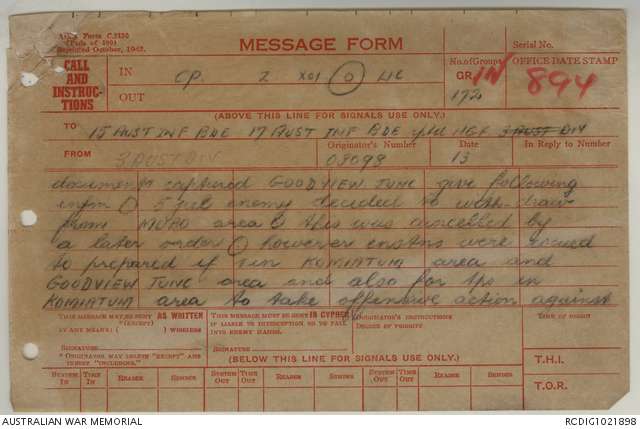 Army Form C.2130
(Pads of 100)
Reprinted October, 1942.
MESSAGE FORM
Serial No.
CALL AND INSTRUC-TIONS
IN
CP. Z XO1 O LIC
OUT
No. of Groups
GR
IN
172
OFFICE DATE STAMP
894
(ABOVE THIS LINE FOR SIGNALS USE ONLY.)
TO 15 AUST INF BDE 17 AUST INF BDE 3 AUST DIV
FROM 3 AUST DIV
Originator's Number
08098
Date
13
In Reply to Number
documents captured GOODVIEW JUNC give following
infm O 5 Jul enemy decided to withdraw
from MUBO area O this was cancelled by
a later order O however were issued
to prepared if in KOMIATUM area and
GOODVIEW JUNC area and also for tps in
KOMIATUM area to take offensive action against
THIS MESSAGE MAY BE SENT AS WRITTEN
BY ANY MEANS (EXCEPT) WIRELESS
SIGNATURE
* ORIGINATOR MAY DELETE "EXCEPT" AND INSERT "INCLUDING."
THIS MESSAGE MUST BE SENT IN CYPHER
IF LIABLE TO INTERCEPTION OR TO FALL INTO ENEMY HANDS.
SIGNATURE
ORIGINATOR'S INSTRUCTIONS
DEGREE OF PRIORITY
TIME OF ORIGIN
(BELOW THIS LINE FOR SIGNALS USE ONLY.)
T.H.I.
T.O.R.
SYSTEM IN TIME IN READER SENDER SYSTEM OUT TIME OUT READER SENDER SYSTEM OUT TIME OUT READER SENDER
AUSTRALIAN WAR MEMORIAL
RCDIG1021898